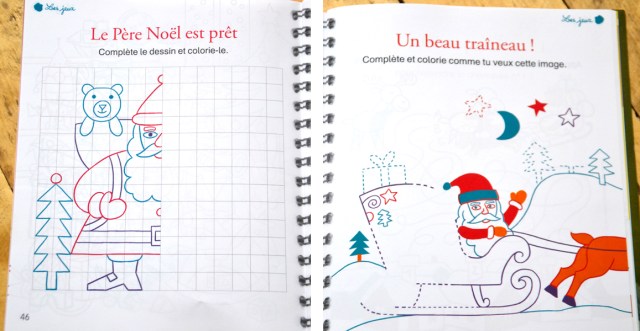 Les jeux
Le Père Noël est prêt
Complète le dessin et colorie-le.
46
Les jeux
Un beau traîneau !
Complète et colorie comme tu veux cette image.